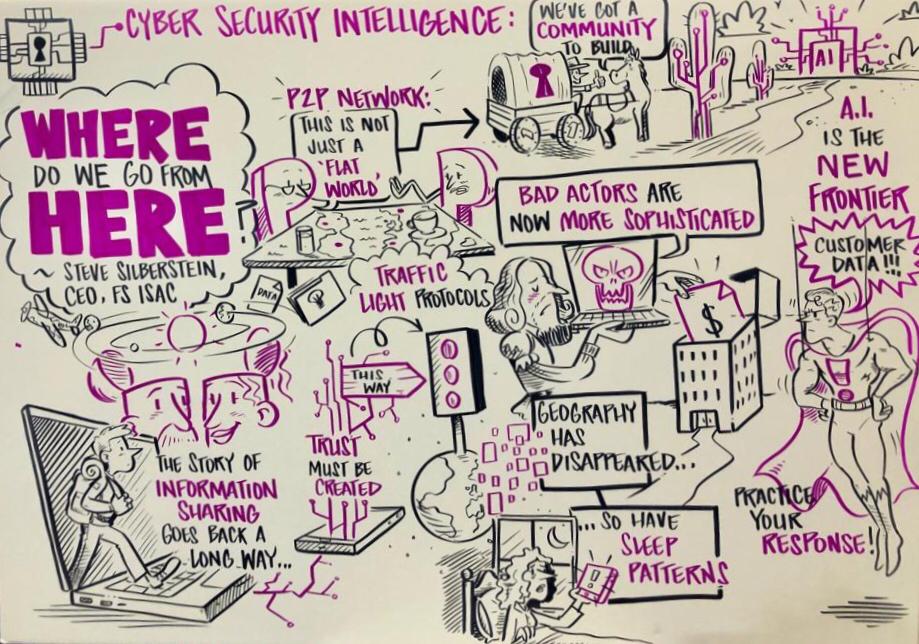 CYBER SECURITY INTELLIGENCE:
WHERE
DO WE GO FROM
HERE?
~ STEVE SILBERSTEIN,
CEO, FS ISAC
P2P NETWORK:
THIS IS NOT
JUST A
'FLAT
WORLD'
WE'VE GOT A
COMMUNITY
TO BUILD
AI
A.I.
IS THE
NEW
FRONTIER
BAD ACTORS ARE
NOW MORE SOPHISTICATED
CUSTOMER
DATA!!!
DATA
TRAFFIC
LIGHT PROTOCOLS
$
THIS
WAY
TRUST
MUST BE
CREATED
THE STORY OF
INFORMATION
SHARING
GOES BACK A
LONG WAY...
GEOGRAPHY
HAS
DISAPPEARED...
...SO HAVE
SLEEP
PATTERNS
PRACTICE
YOUR
RESPONSE!